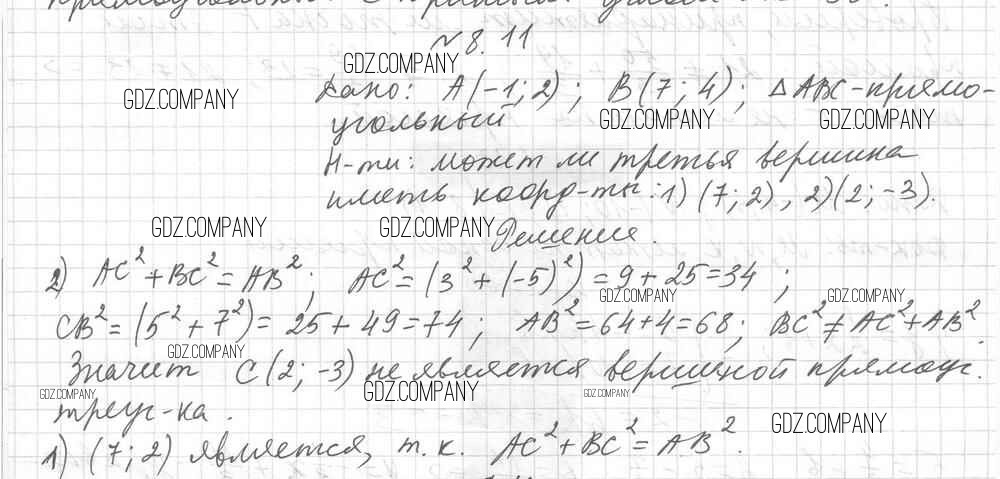 № 8.11
GDZ.COMPANY
Дано: A(-1; 2); B(7; 4); △ABC - прямо-
GDZ.COMPANY
угольный
GDZ.COMPANY GDZ.COMPANY
Н-ти: может ли третья вершина
иметь коорд-ты: 1) (7; 2), 2) (2; -3).
GDZ.COMPANY GDZ.COMPANY
Решение.
2) AC² + BC² = AB²; AC² = (3² + (-5)²) = 9 + 25 = 34;
GDZ.COMPANY GDZ.COMPANY
CB² = (5² + 7²) = 25 + 49 = 74; AB² = 64 + 4 = 68; BC² ≠ AC² + AB².
GDZ.COMPANY
Значит C(2; -3) не является вершиной прямоуг.
GDZ.COMPANY GDZ.COMPANY GDZ.COMPANY
треуг-ка.
GDZ.COMPANY
1) (7; 2) является, т.к. AC² + BC² = AB².